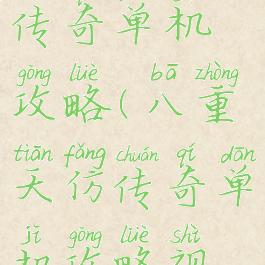 传奇单机
gōng lüè bā zhòng
攻略(八重
tiān fǎng chuán qí dān
天仿传奇单
jī gōng lüè shì
机攻略视